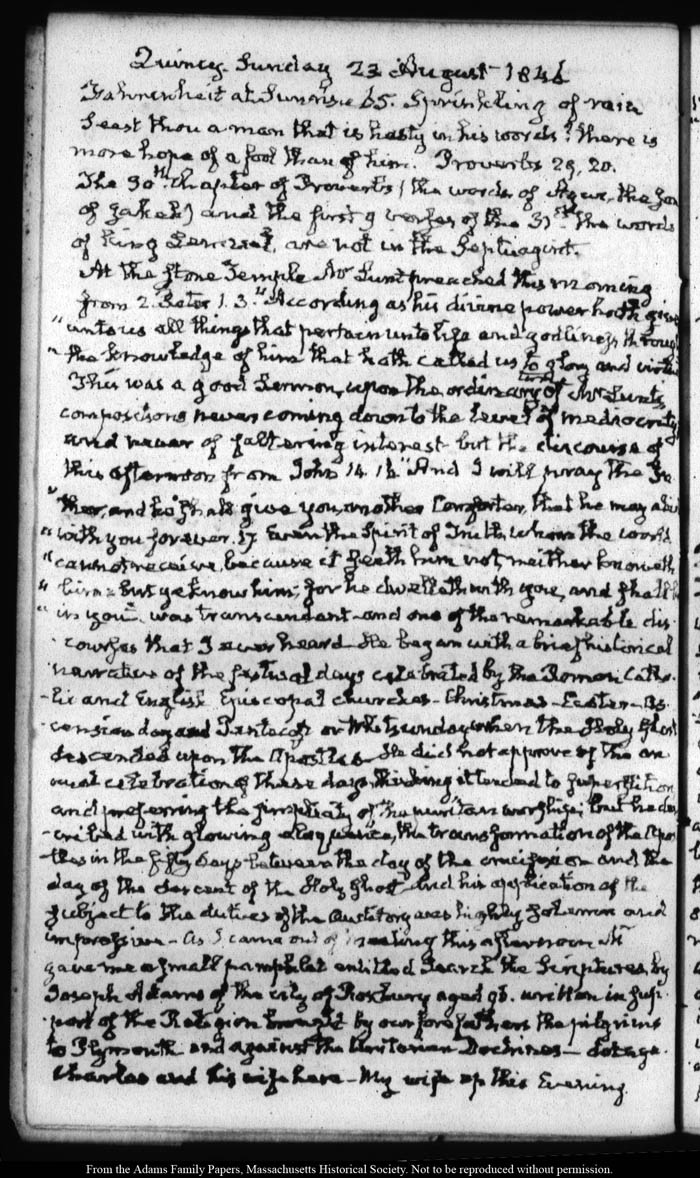 Quincy. Sunday 23 August 1846
Fahrenheit at Sunrise 65. Sprinkling of rain
Seest thou a man that is hasty in his words? there is
more hope of a fool than of him. Proverbs 29, 20.
The 30th chapter of Proverbs (the words of Agur, the son
of Jakeh) and the first 9 verses of the 31st the words
of King Lemuel, are not in the Septuagint.
At the Stone Temple Mr Lunt preached this morning
from 2. Peter 1. 3. "According as his divine power hath given
"unto us all things that pertain unto life and godliness through
"the knowledge of him that hath called us to glory and virtue
This was a good Sermon, upon the ordinary of Mr Lunt's
compositions never coming down to the level of mediocrity
and never of faltering interest but the discourse of
this afternoon from John 14. 16. "And I will pray the Fa
"ther, and he shall give you another Comforter, that he may abide
"with you forever. 17 Even the Spirit of Truth, whom the world
"cannot receive, because it seeth him not, neither knoweth
"him: but ye know him; for he dwelleth with you, and shall be
"in you" was transcendent and one of the remarkable dis
courses that I ever heard – He began with a brief historical
narrative of the festival days celebrated by the Roman Catho-
lic and English Episcopal churches – Christmas – Easter – As-
cension day and Pentecost or Whitsunday when the Holy Ghost
descended upon the Apostles – He did not approve of the an
nual celebration of these days, thinking it tended to superstition
and preferring the simplicity of the puritan worship; but he des
-cribed with glowing eloquence, the transformation of the Apos
tles in the fifty days between the day of the crucifixion and the
day of the descent of the Holy Ghost and his application of the
subject to the duties of the auditory was highly solemn and
impressive – As I came out of meeting this afternoon
gave me a small pamphlet entitled Search the Scriptures, by
Joseph Adams of the city of Roxbury aged written in sup
port of the Religion brought by our forefathers the pilgrims
to Plymouth and against the Unitarian Doctrines – dotage.
Charles and his wife here – My wife up this Evening.
From the Adams Family Papers, Massachusetts Historical Society. Not to be reproduced without permission.